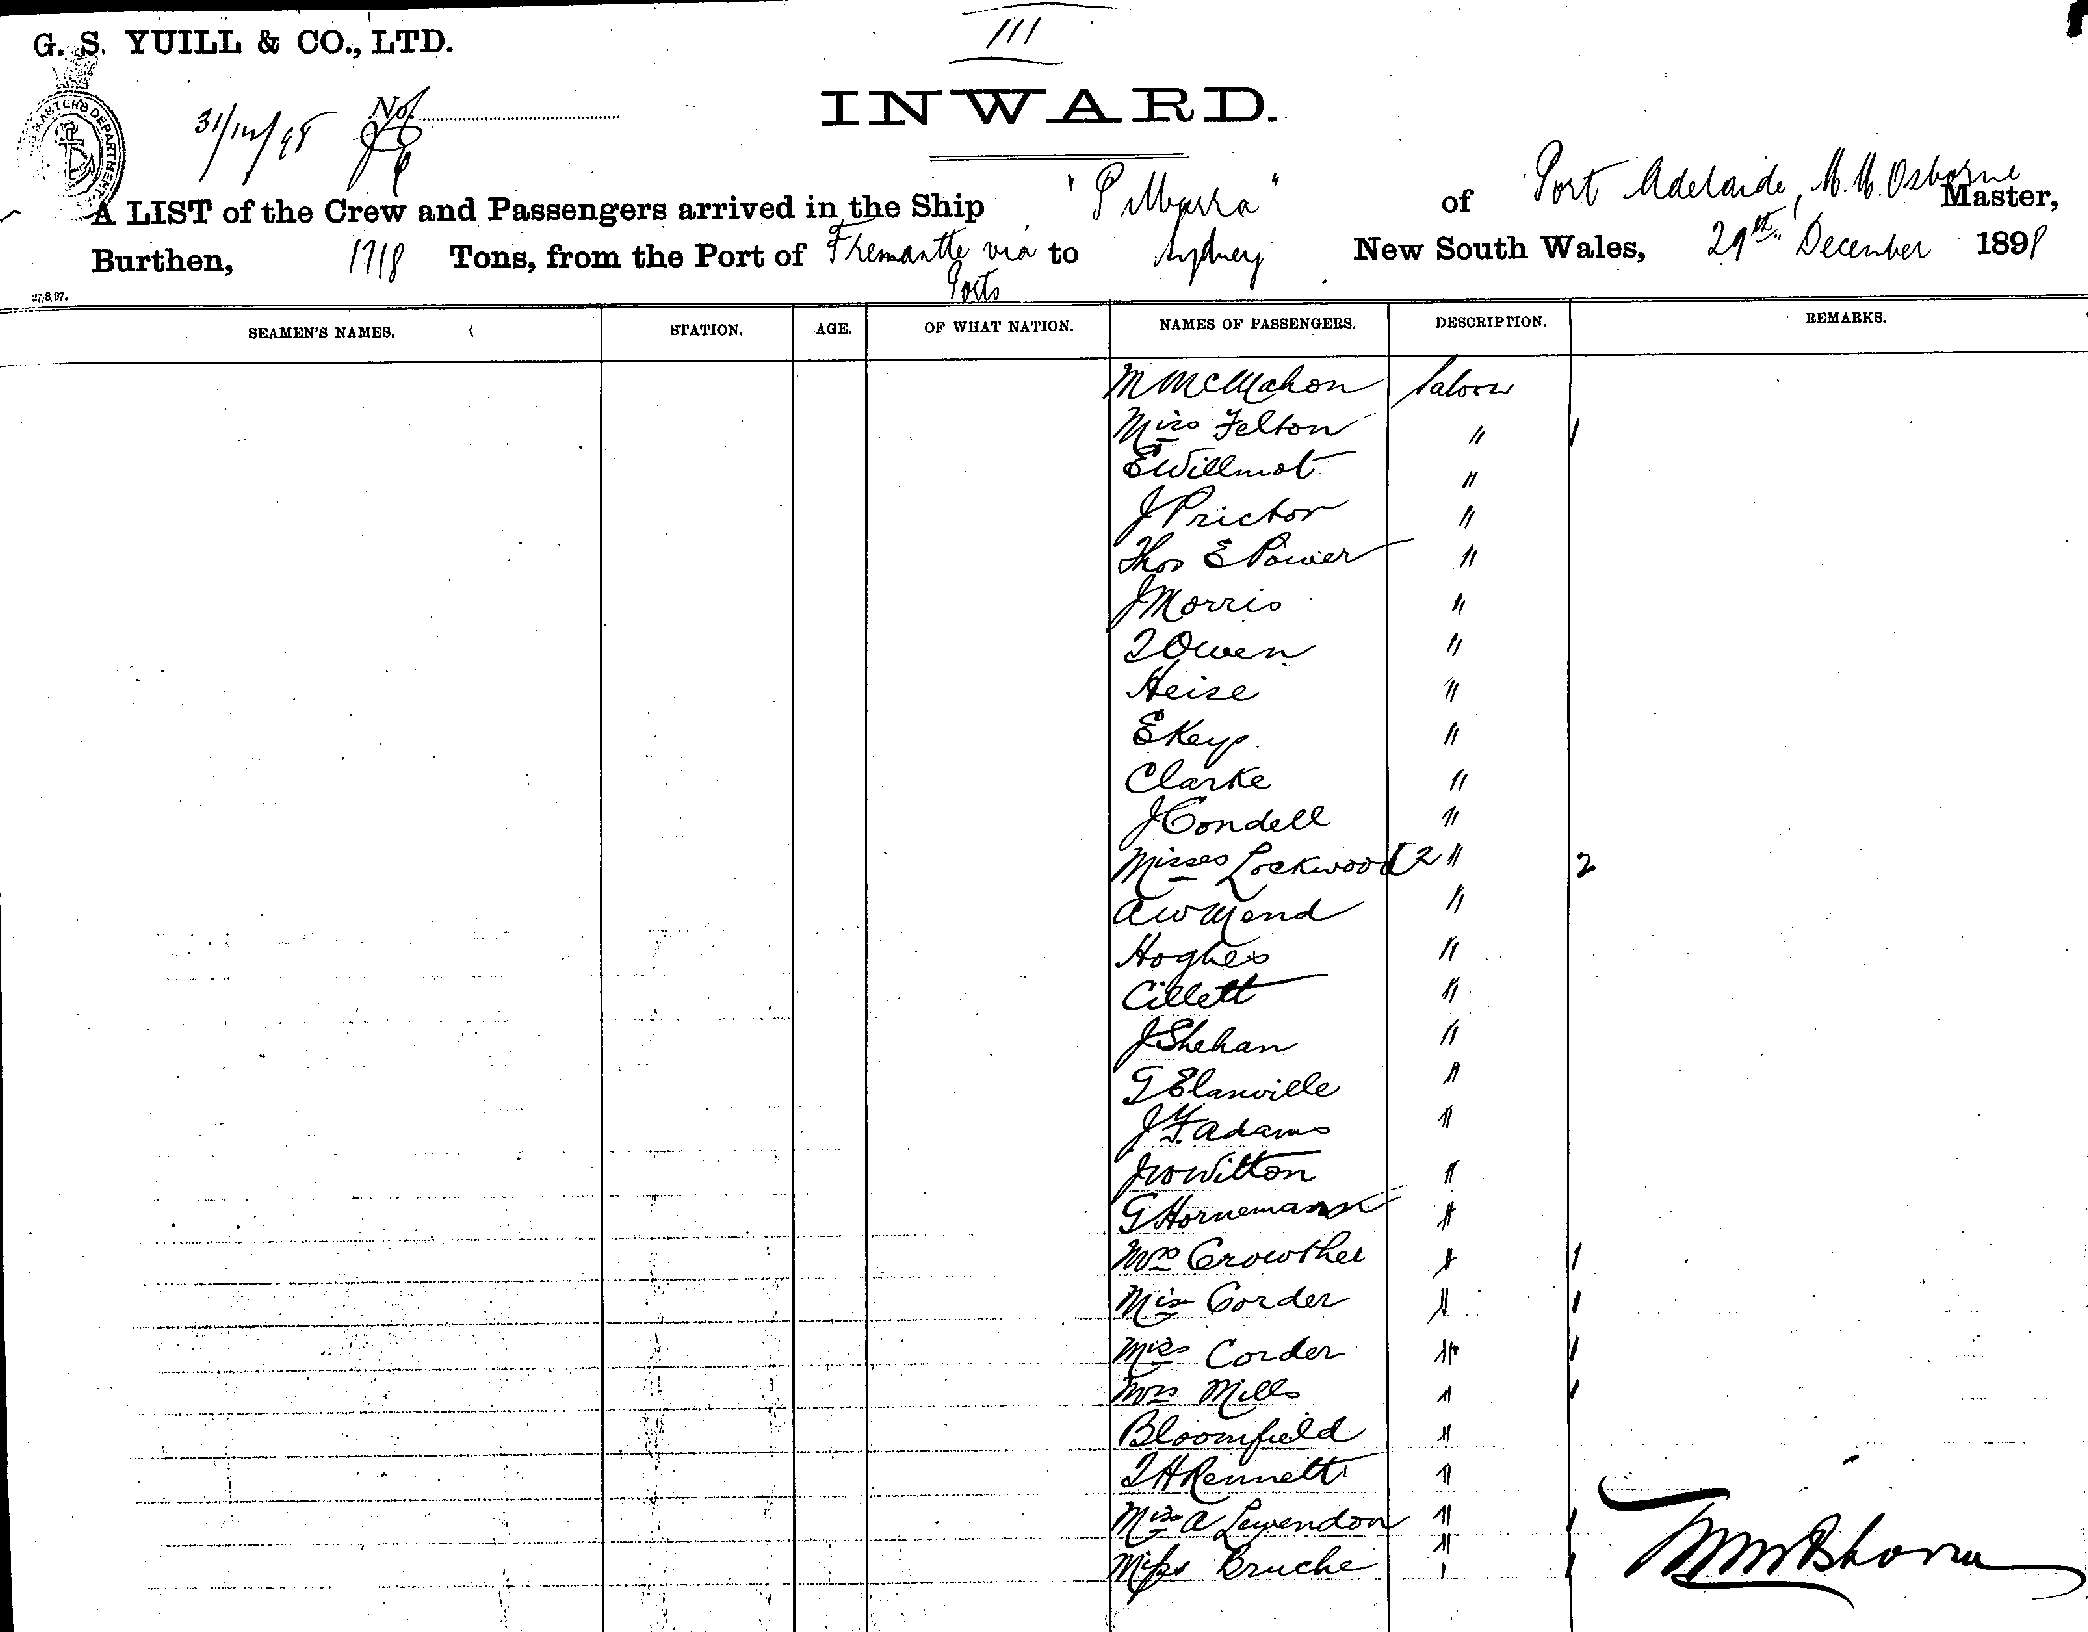 111
G. S. YUILL & CO., LTD.
INWARD.
31/12/98 No.
A LIST of the Crew and Passengers arrived in the Ship "Pilbarra" of Port Adelaide, M. M. Osborne Master,
Burthen, 1718 Tons, from the Port of Fremantle via Ports to Sydney New South Wales, 29th December 1898
27.8.97.
SEAMEN'S NAMES. STATION. AGE. OF WHAT NATION. NAMES OF PASSENGERS. DESCRIPTION. REMARKS.
M McMahon Saloon
Miss Felton " 1
E Willmot "
J Prictor "
Thos E Power "
J Morris "
T Owen "
Heise "
E Keys "
Clarke "
J Condell "
Misses Lockwood 2 " 2
A W Mend "
Hoghes "
Cillett "
J Shehan "
G Elanville "
J F. Adams "
J W Witton "
G Hornemann "
Mrs Crowther " 1
Miss Corder " 1
Miss Corder " 1
Mrs Mills " 1
Bloomfield "
T H Rennett "
Miss A Levendon " 1
Miss Bruche " 1